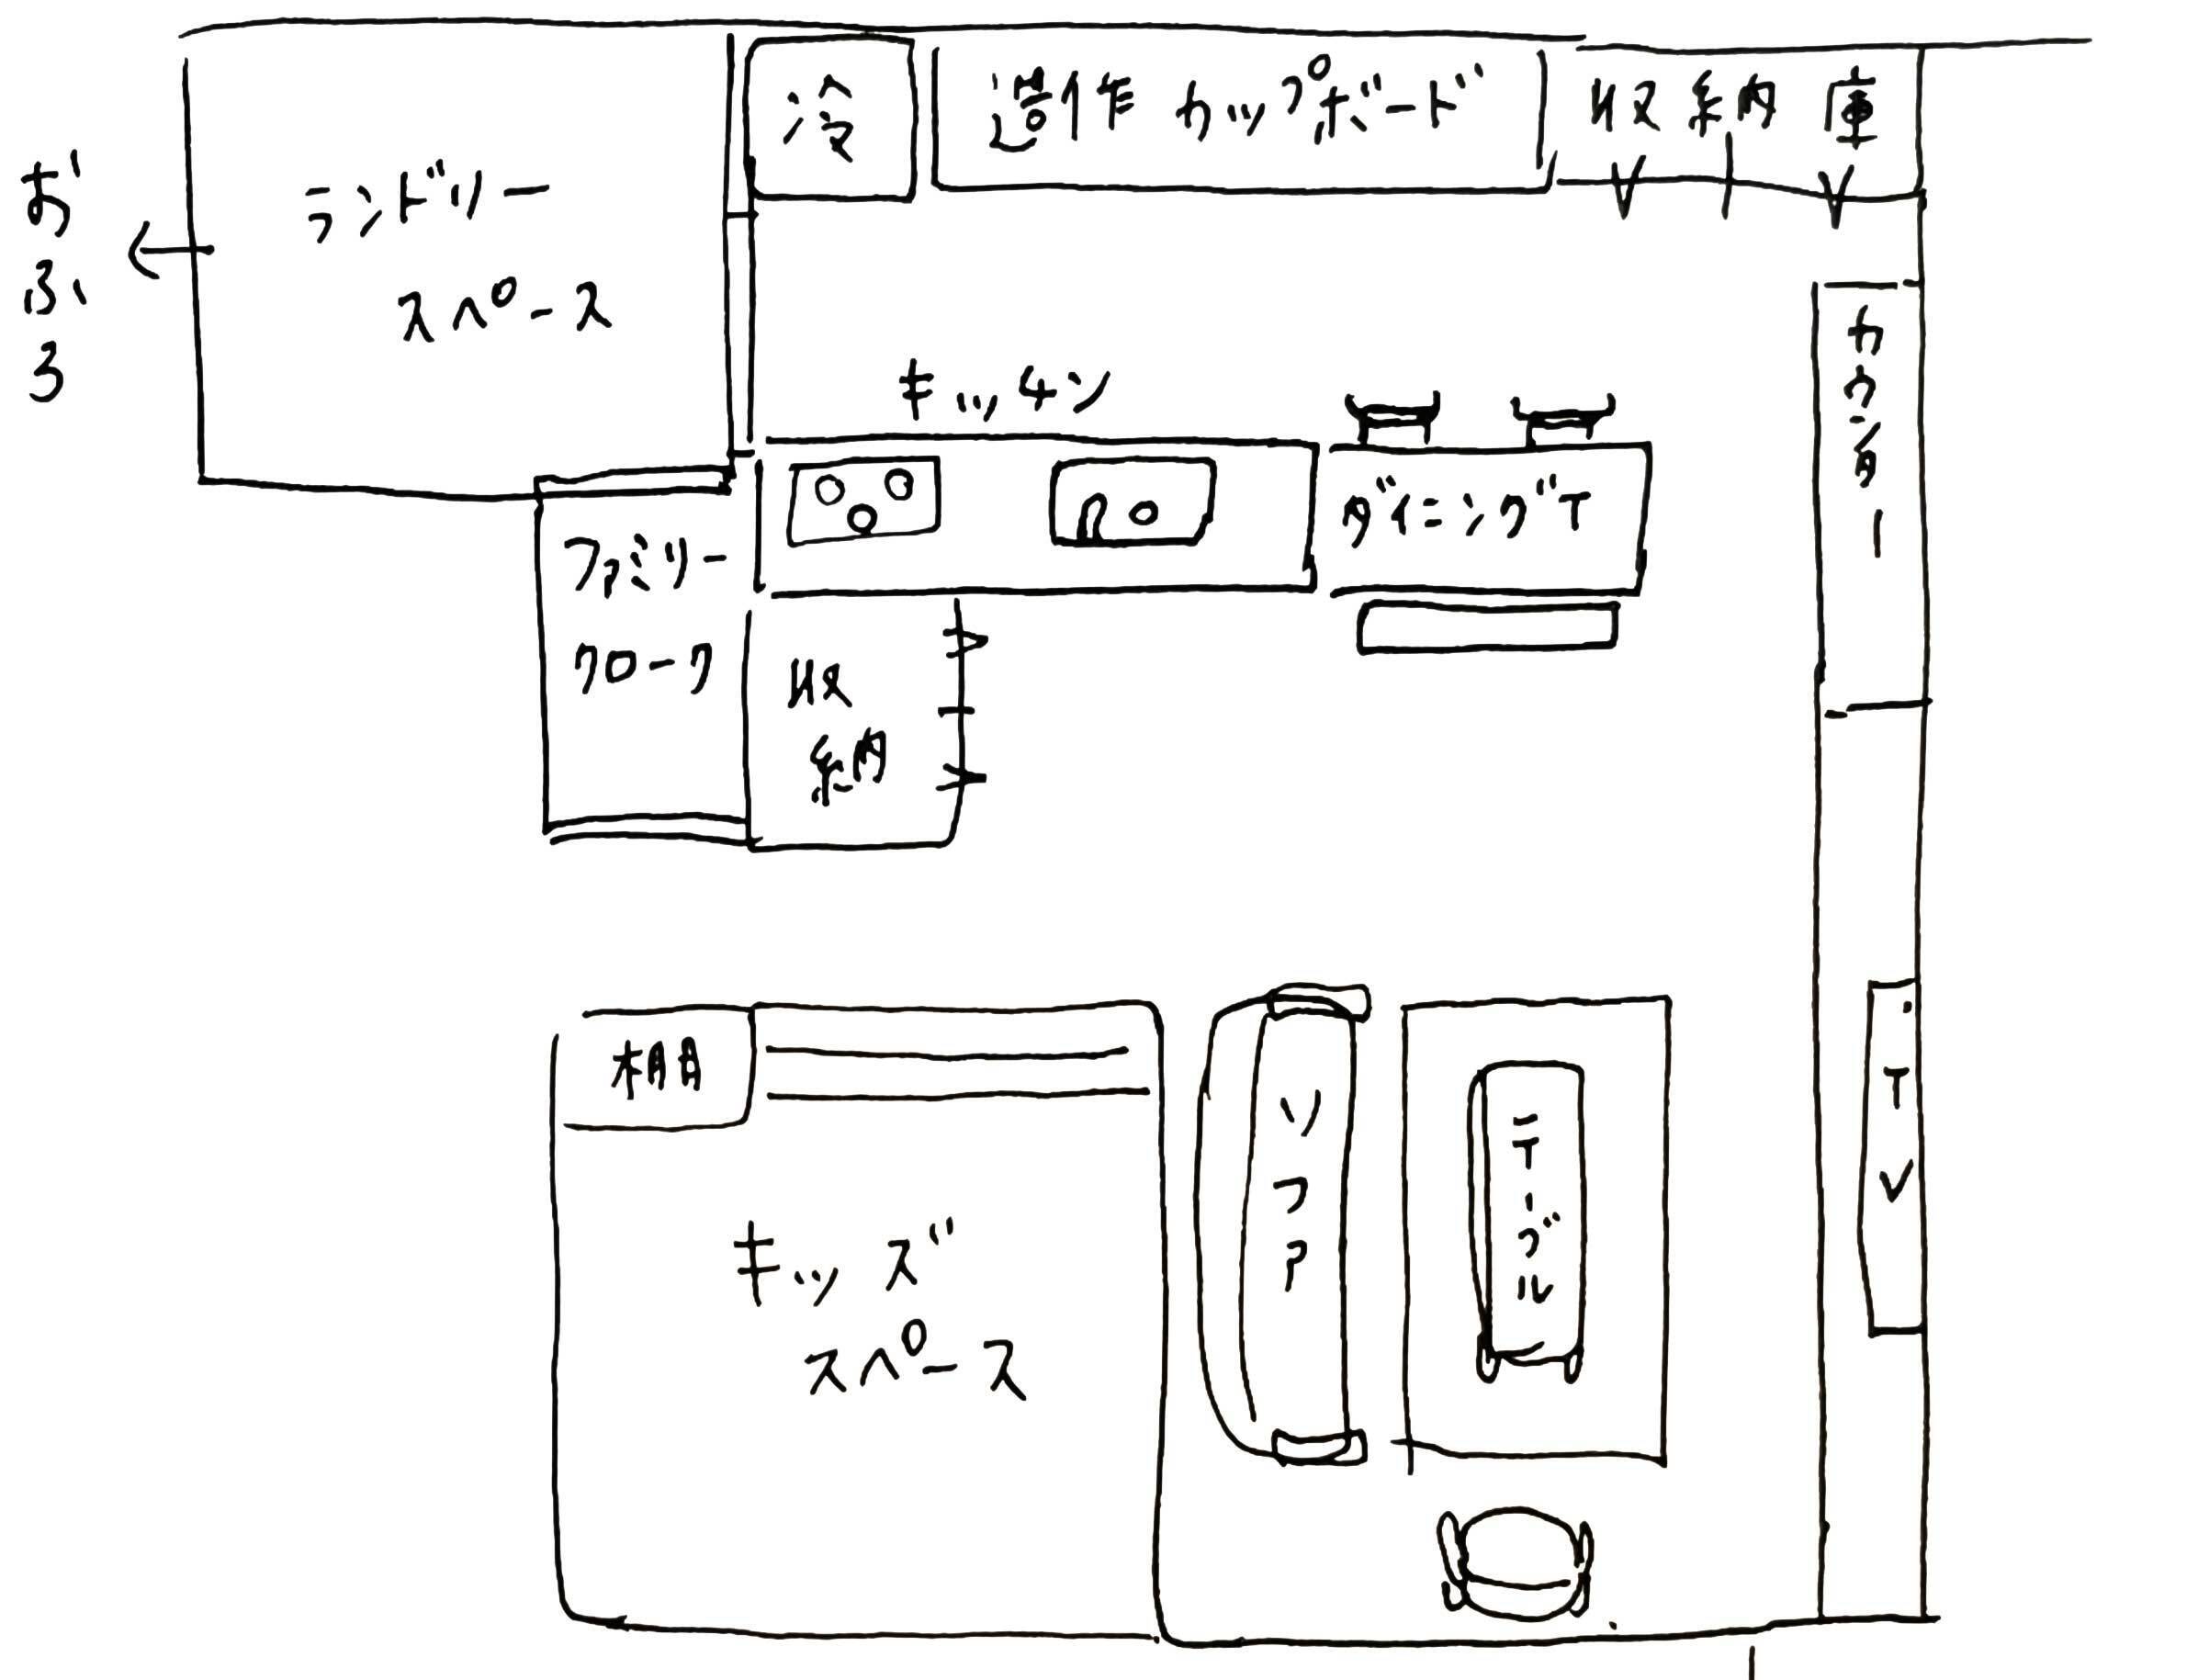 冷
造作 カップボード
収納庫
おふろ
ランドリー
スペース
カウンター
キッチン
ダイニングT
ファミリー
クローク
収
納
棚
ソファ
テーブル
TV
キッズ
スペース